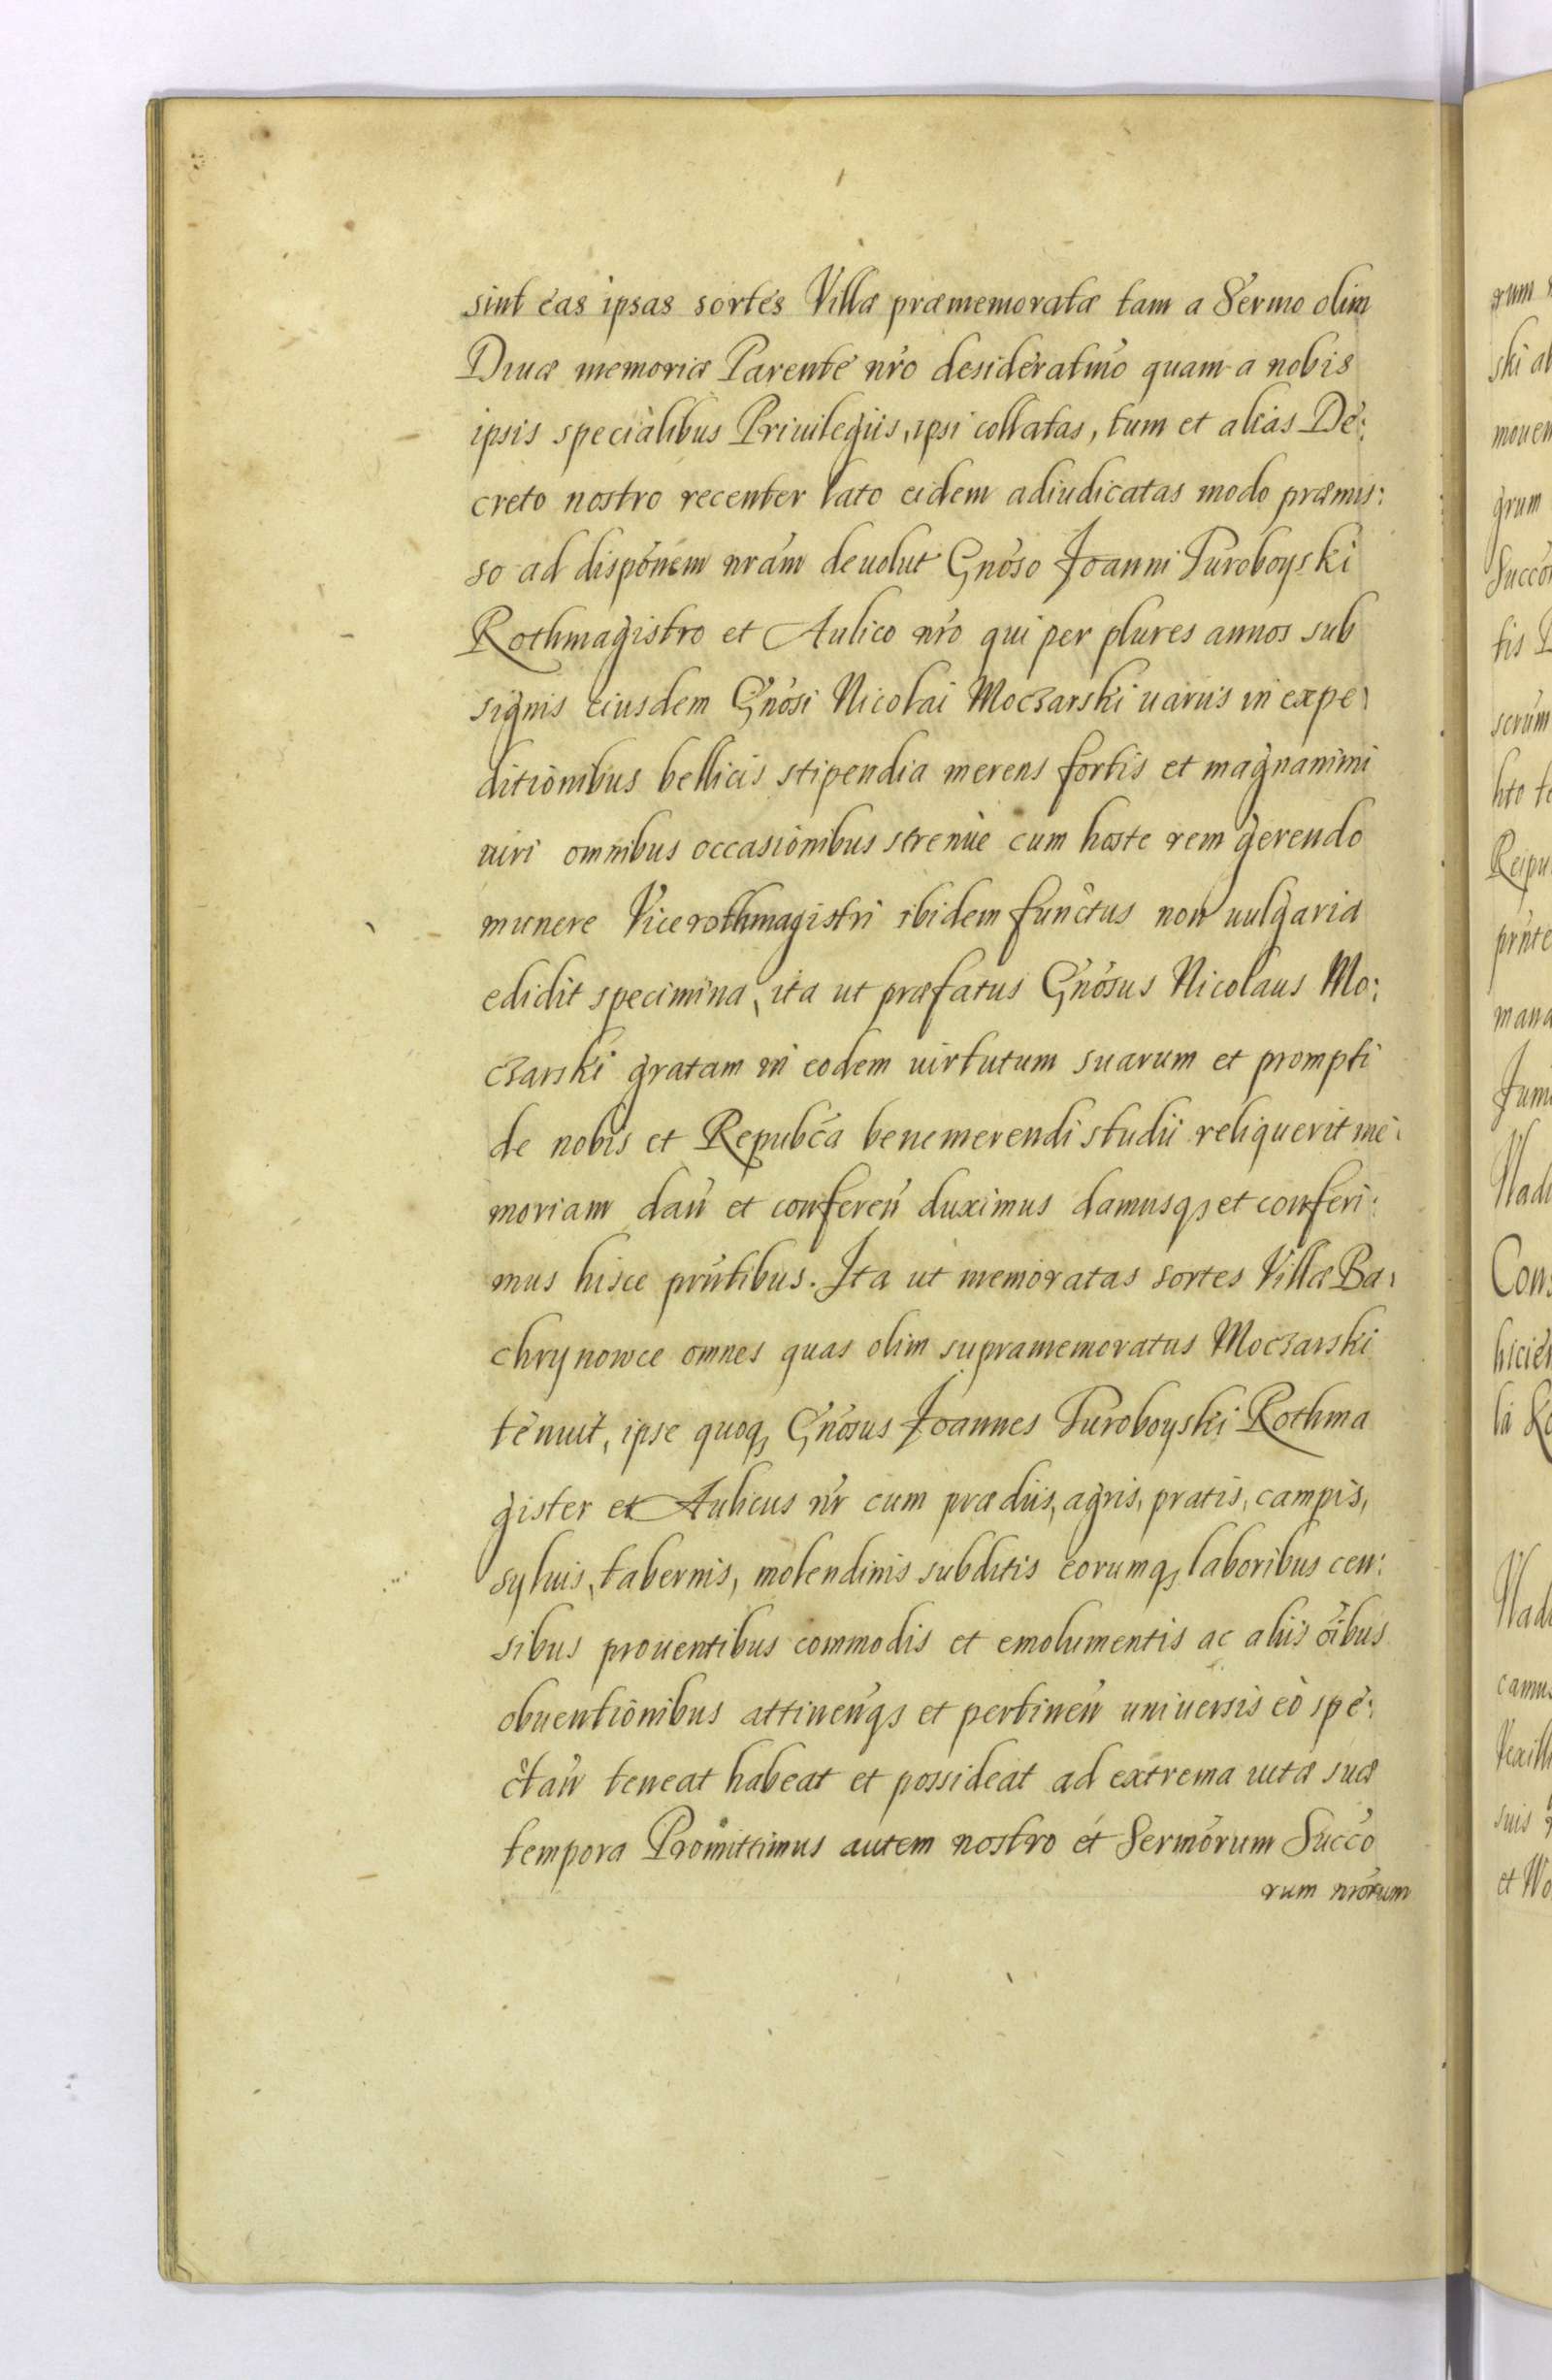 sint eas ipsas sortes Villæ præmemoratæ tam a Sermo olim
Diuæ memoriæ Parente nro desideratmo quam a nobis
ipsis specialibus Priuilegiis, ipsi collatas, tum et alias De:
creto nostro recenter lato eidem adiudicatas modo præmis:
so ad disponem nram deuolut Gnoso Joanni Turoboyski
Rothmagistro et Aulico nro qui per plures annos sub
signis eiusdem Gnosi Nicolai Moczarski uariis in expe:
ditionibus bellicis stipendia merens fortis et magnanimi
uiri omnibus occasionibus strenue cum hoste rem gerendo
munere Vicerothmagistri ibidem functus non uulgaria
edidit specimina, ita ut præfatus Gnosus Nicolaus Mo:
czarski gratam in eodem uirtutum suarum et prompti
de nobis et Repubca benemerendi studii reliquerit me:
moriam dan et conferen duximus damusqз et conferi:
mus hisce prntibus. Ita ut memoratas sortes Villæ Ba:
chrynowce omnes quas olim supramemoratus Moczarski
tenuit, ipse quoqз Gnosus Joannes Turoboyski Rothma
gister et Aulicus nr cum prædiis, agris, pratis, campis,
syluis, tabernis, molendinis subditis eorumqз laboribus cen:
sibus prouentibus commodis et emolumentis ac aliis oibus
obuentionibus attinenqз et pertinen uniuersis eò spe:
ctan teneat habeat et possideat ad extrema uitæ suæ
tempora Promittimus autem nostro et Sermorum Succo
rum nrorum